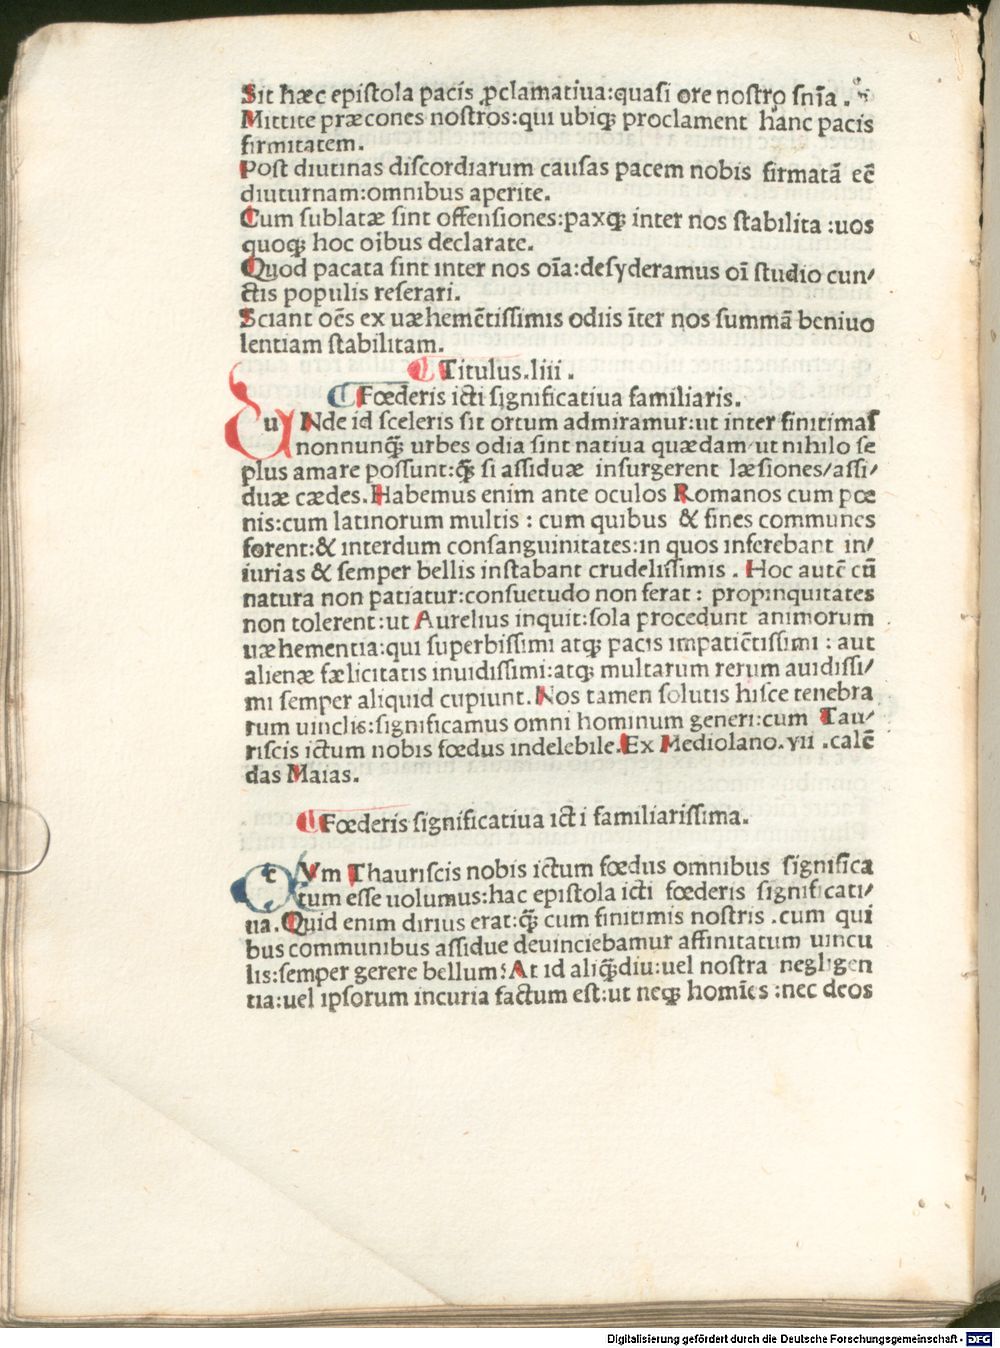 Sit hæc epistola pacis ꝓclamatiua:quasi ore nostro sn̄ia .
Mittite præcones nostros:qui ubiqꝫ proclament hanc pacis
firmitatem.
Post diutinas discordiarum causas pacem nobis firmatā eē
diuturnam:omnibus aperite.
Cum sublatæ sint offensiones:paxqꝫ inter nos stabilita :uos
quoqꝫ hoc oībus declarate.
Quod pacata sint inter nos oīa:desyderamus oī studio cun/
ctis populis reserari.
Sciant oēs ex uæhemētissimis odiis īter nos summā beniuo
lentiam stabilitam.
Titulus.liii .
Fœderis icti significatiua familiaris.
u Nde id sceleris sit ortum admiramur:ut inter finitimas
nonnunqꝫ urbes odia sint natiua quædam ut nihilo se
plus amare possunt:qꝫ si assiduæ insurgerent læsiones/assi/
duæ cædes. Habemus enim ante oculos Romanos cum pœ
nis:cum latinorum multis : cum quibus & fines communes
forent:& interdum consanguinitates:in quos inferebant in/
iurias & semper bellis instabant crudelissimis . Hoc autē cū
natura non patiatur:consuetudo non ferat : propinquitates
non tolerent:ut Aurelius inquit:sola procedunt animorum
uæhementia:qui superbissimi atqꝫ pacis impatiētissimi : aut
alienæ fælicitatis inuidissimi:atqꝫ multarum rerum auidissi/
mi semper aliquid cupiunt. Nos tamen solutis hisce tenebra
rum uinclis:significamus omni hominum generi:cum Tau/
riscis ictum nobis fœdus indelebile. Ex Mediolano. vii .calē
das Maias.
Fœderis significatiua icti familiarissima.
c Vm Thauriscis nobis ictum fœdus omnibus significa
tum esse uolumus:hac epistola icti fœderis significati/
ua. Quid enim dirius erat:qꝫ cum finitimis nostris .cum qui
bus communibus assidue deuinciebamur affinitatum uincu
lis:semper gerere bellum? At id aliqꝫdiu:uel nostra negligen
tia:uel ipsorum incuria factum est:ut neqꝫ homīes :nec deos
Digitalisierung gefördert durch die Deutsche Forschungsgemeinschaft - DFG